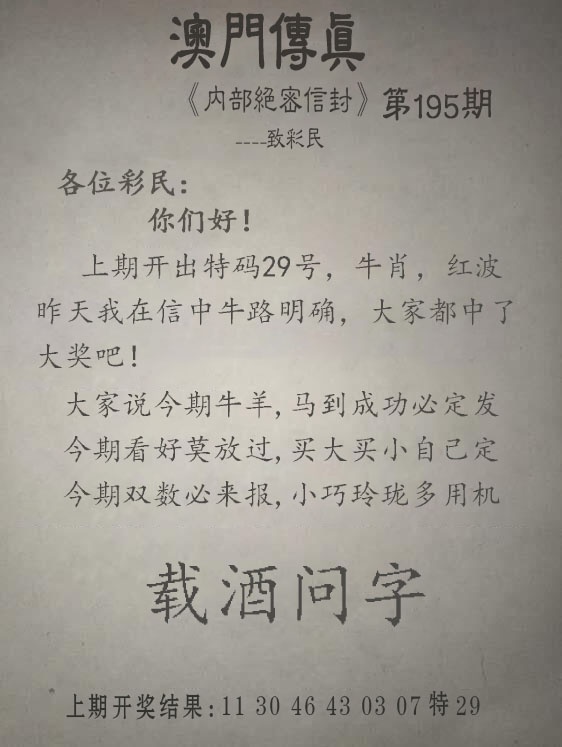 澳門傳眞
《内部絕密信封》第195期
----致彩民
各位彩民：
你们好！
上期开出特码29号，牛肖，红波
昨天我在信中牛路明确，大家都中了
大奖吧！
大家说今期牛羊,马到成功必定发
今期看好莫放过,买大买小自己定
今期双数必来报,小巧玲珑多用机
载酒问字
上期开奖结果:11 30 46 43 03 07 特 29